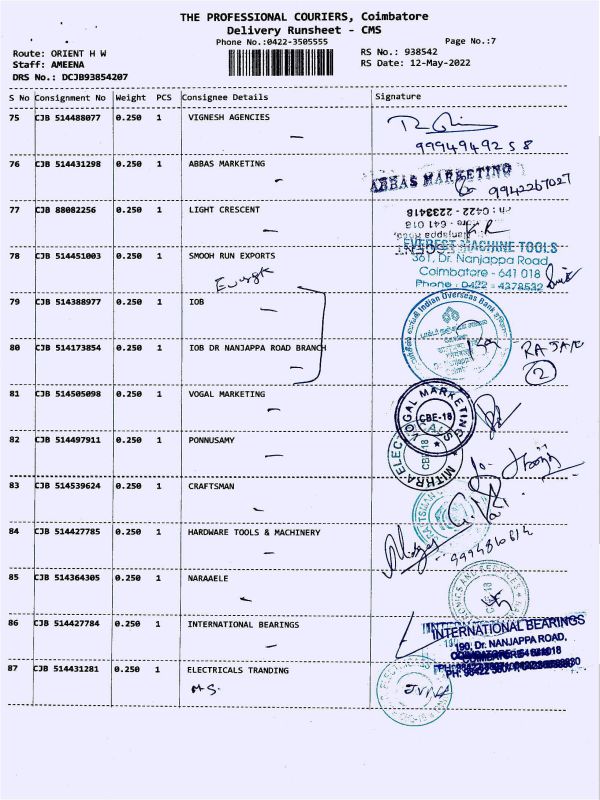 THE PROFESSIONAL COURIERS, Coimbatore
Delivery Runsheet - CMS
Phone No.:0422-3505555
Page No.:7
Route: ORIENT H W
RS No.: 938542
Staff: AMEENA
RS Date: 12-May-2022
DRS No.: DCJB93854207
S No Consignment No Weight PCS Consignee Details Signature
75 CJB 514488077 0.250 1 VIGNESH AGENCIES
9994949258
76 CJB 514431298 0.250 1 ABBAS MARKETING
ABBAS MARKETING
9942267027
77 CJB 88082256 0.250 1 LIGHT CRESCENT
Ph : 0422 - 2233418
K.R
78 CJB 514451003 0.250 1 SMOOH RUN EXPORTS
EVEREST MACHINE TOOLS
361, Dr. Nanjappa Road,
Coimbatore - 641 018
Phone : 0422 - 4378532
79 CJB 514388977 0.250 1 IOB
Indian Overseas Bank
80 CJB 514173854 0.250 1 IOB DR NANJAPPA ROAD BRANCH
2
81 CJB 514505098 0.250 1 VOGAL MARKETING
VOGAL MARKETINGS
CBE-18
82 CJB 514497911 0.250 1 PONNUSAMY
MITHRA ELEC
CBE-18
83 CJB 514539624 0.250 1 CRAFTSMAN
84 CJB 514427785 0.250 1 HARDWARE TOOLS & MACHINERY
85 CJB 514364305 0.250 1 NARAAELE
86 CJB 514427784 0.250 1 INTERNATIONAL BEARINGS
INTERNATIONAL BEARINGS
190, Dr. NANJAPPA ROAD,
87 CJB 514431281 0.250 1 ELECTRICALS TRANDING
M.S.